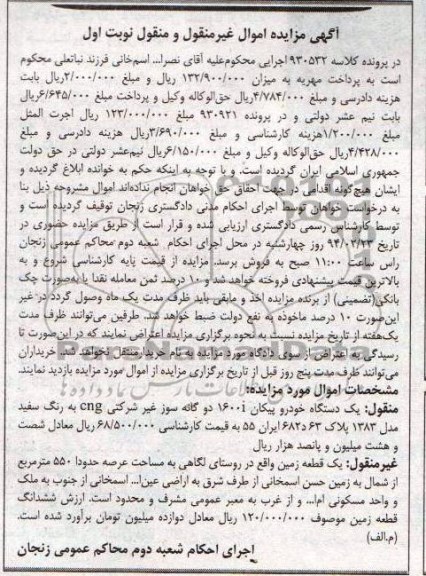 آگهی مزایده اموال غیرمنقول و منقول نوبت اول
در پرونده کلاسه ۹۳۰۵۳۲ اجرایی محکوم‌علیه آقای نصرا... اسم‌خانی فرزند نباتعلی محکوم
است به پرداخت مهریه به میزان ۱۳۲/۹۰۰/۰۰۰ ریال و مبلغ ۲/۰۰۰/۰۰۰ریال بابت
هزینه دادرسی و مبلغ ۴/۷۸۴/۰۰۰ریال حق‌الوکاله وکیل و پرداخت مبلغ ۶/۶۴۵/۰۰۰ریال
بابت نیم عشر دولتی و در پرونده ۹۳۰۹۲۱ مبلغ ۱۲۳/۰۰۰/۰۰۰ ریال اجرت المثل
مبلغ ۱/۲۰۰/۰۰۰هزینه کارشناسی و مبلغ ۳/۶۹۰/۰۰۰ریال هزینه دادرسی و مبلغ
۴/۴۲۸/۰۰۰ریال حق‌الوکاله وکیل و مبلغ ۶/۱۵۰/۰۰۰ریال نیم‌عشر دولتی در حق دولت
جمهوری اسلامی ایران گردیده است. و با توجه به اینکه حکم به خوانده ابلاغ گردیده و
ایشان هیچ‌گونه اقدامی در جهت احقاق حق خواهان انجام نداده‌اند اموال مشروحه ذیل بنا
به درخواست خواهان توسط اجرای احکام مدنی دادگستری زنجان توقیف گردیده است و
توسط کارشناس رسمی دادگستری ارزیابی شده و قرار است از طریق مزایده حضوری در
تاریخ ۹۴/۰۲/۲۳ روز چهارشنبه در محل اجرای احکام شعبه دوم محاکم عمومی زنجان
راس ساعت ۱۱:۰۰ صبح به فروش برسد. مزایده از قیمت پایه کارشناسی شروع و به
بالاترین قیمت پیشنهادی فروخته خواهد شد و ۱۰ درصد ثمن معامله نقدا یا به‌صورت چک
بانکی(تضمینی) از برنده مزایده اخذ و مابقی باید ظرف مدت یک ماه وصول گردد در غیر
این‌صورت ۱۰ درصد ماخوذه به نفع دولت ضبط خواهد شد. طرفین می‌توانند ظرف مدت
یک‌هفته از تاریخ مزایده نسبت به نحوه برگزاری مزایده اعتراض نمایند که در این‌صورت تا
رسیدگی به اعتراض از سوی دادگاه مورد مزایده به نام خریدار منتقل نخواهد شد. خریداران
می‌توانند ظرف مدت پنج روز قبل از تاریخ برگزاری مزایده از اموال مورد مزایده بازدید نمایند.
مشخصات اموال مورد مزایده:
منقول: یک دستگاه خودرو پیکان ۱۶۰۰i دو گانه سوز غیر شرکتی cng به رنگ سفید
مدل ۱۳۸۳ پلاک ۶۳ د۶۸۲ ایران ۵۵ به قیمت کارشناسی ۶۸/۵۰۰/۰۰۰ ریال معادل شصت
و هشت میلیون و پانصد هزار ریال
غیرمنقول: یک قطعه زمین واقع در روستای لگاهی به مساحت عرصه حدودا ۵۵۰ مترمربع
از شمال به زمین حسن اسمخانی از طرف شرق به اراضی عین‌ا... اسمخانی از جنوب به ملک
و واحد مسکونی ام‌ا... و از غرب به معبر عمومی مشرف و محدود است. ارزش ششدانگ
قطعه زمین موصوف ۱۲۰/۰۰۰/۰۰۰ ریال معادل دوازده میلیون تومان برآورد شده است.
(م.الف)
اجرای احکام شعبه دوم محاکم عمومی زنجان